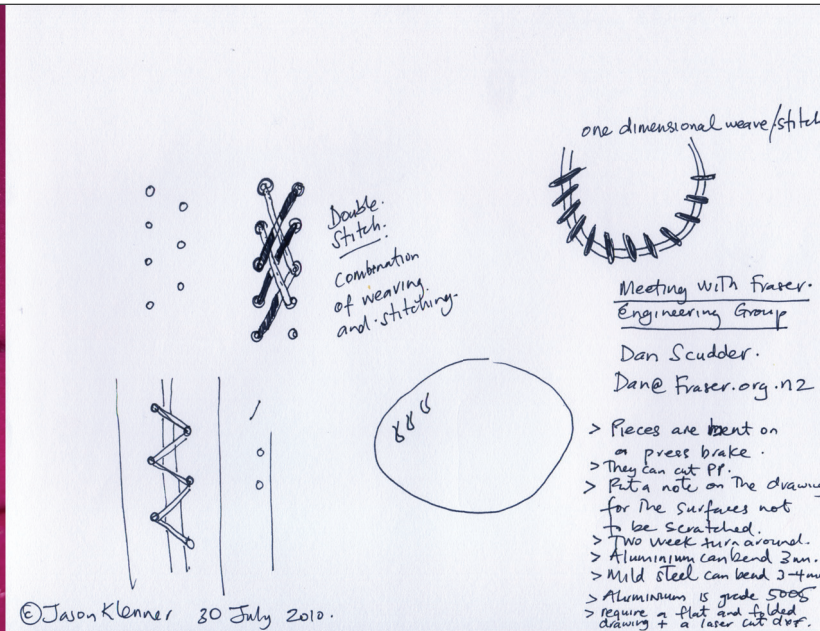 one dimensional weave/stitch
Double.
Stitch.
Combination
of weaving.
and stitching.
Meeting with Fraser.
Engineering Group
Dan Scudder.
Dan@Fraser.org.nz
> Pieces are bent on
a press brake.
> They can cut PP.
> Put a note on The drawing
for The surfaces not
to be scratched.
> Two week turn around.
> Aluminium can bend 3mm.
> Mild steel can bend 3-4mm
> Aluminium is grade 5005
> require a flat and folded
drawing + a laser cut dxf.
© Jason Klenner 30 July 2010.